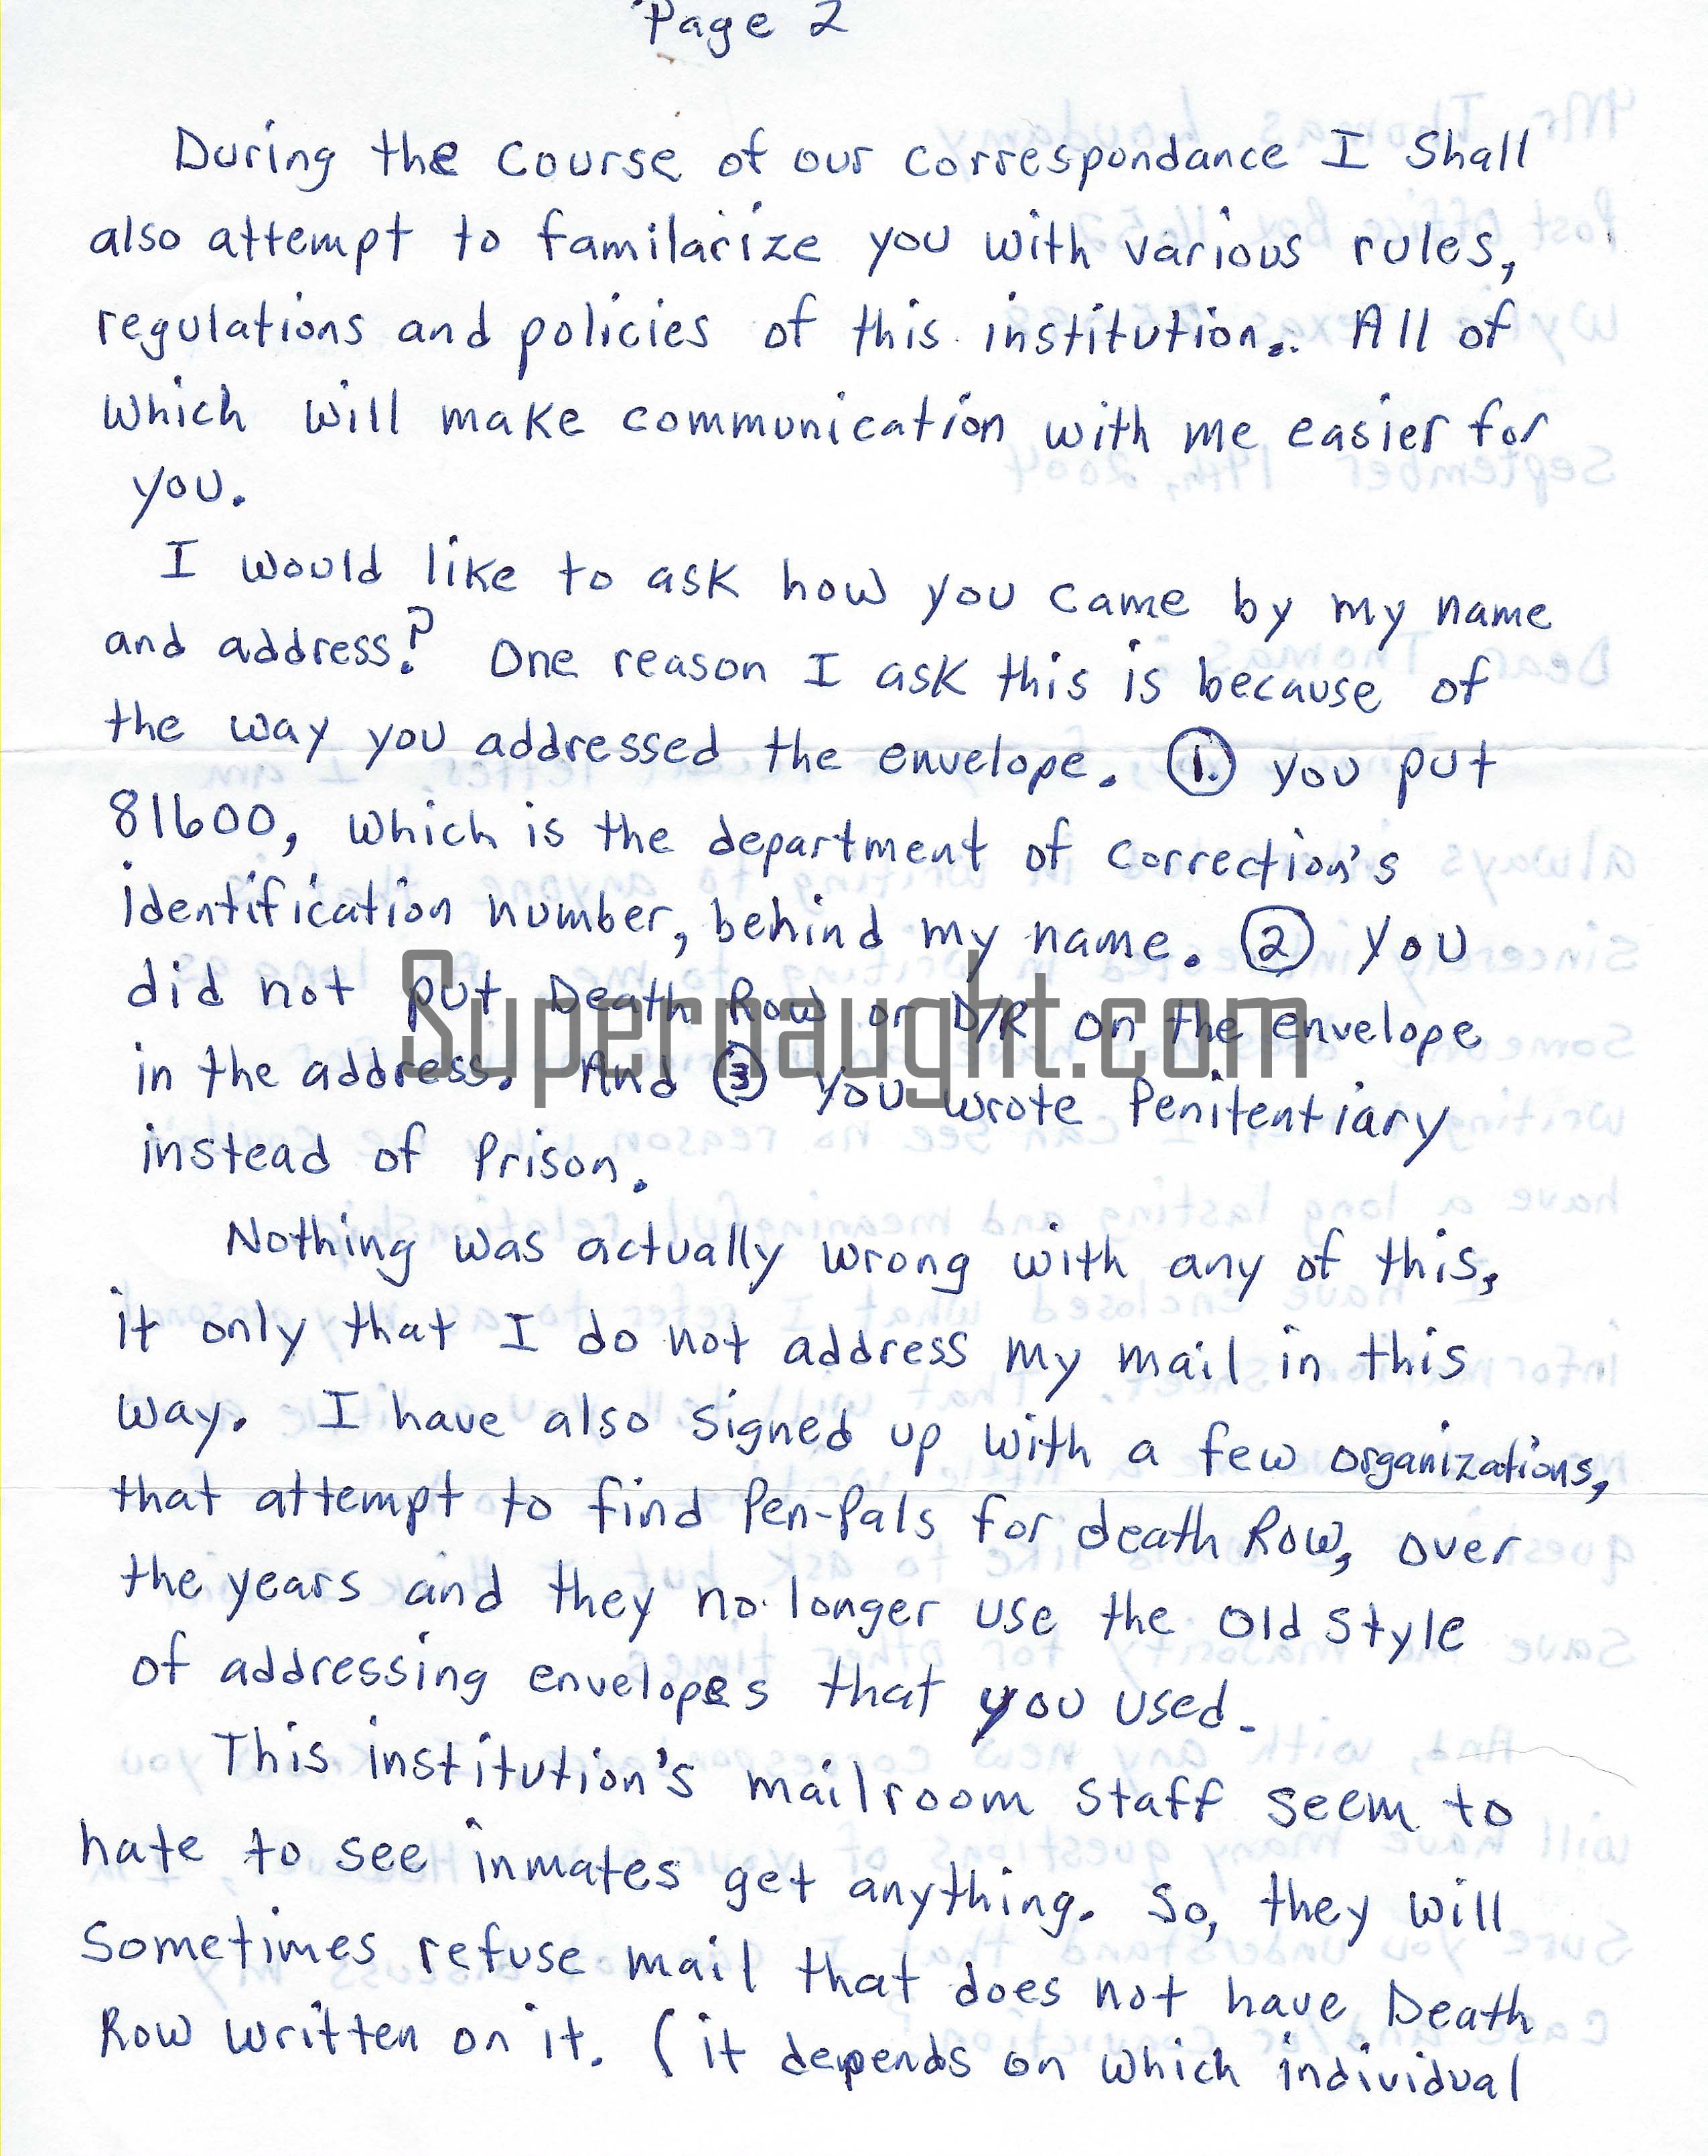 Page 2
During the Course of our Correspondance I Shall
also attempt to familarize you with various rules,
regulations and policies of this institution. All of
which will make communication with me easier for
you.
I would like to ask how you came by my name
and address? One reason I ask this is because of
the way you addressed the envelope. 1. you put
81600, which is the department of Correction's
identification number, behind my name. 2 you
did not put Death Row or D/R on the envelope
in the address. And 3 you wrote Penitentiary
instead of Prison.
Supernaught.com
Nothing was actually wrong with any of this,
it only that I do not address my mail in this
way. I have also signed up with a few organizations,
that attempt to find Pen-Pals for death Row, over
the years and they no longer use the Old Style
of addressing envelopes that you used.
This institution's mailroom Staff seem to
hate to see inmates get anything. So, they will
Sometimes refuse mail that does not have Death
Row written on it. (it depends on which individual